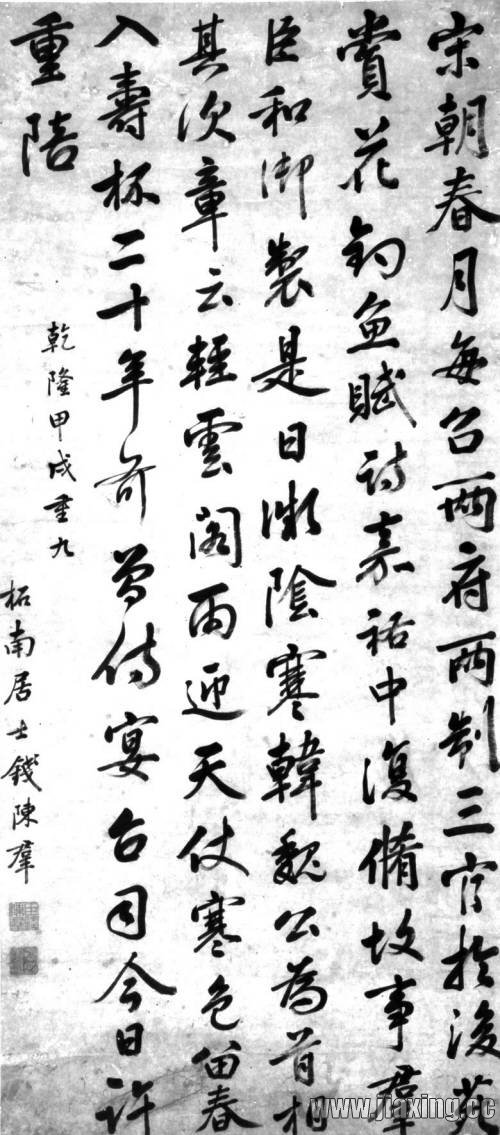 宋朝春月每召兩府兩制三官於後苑
賞花釣魚賦詩嘉祐中復脩故事羣
臣和御製是日微陰寒韓魏公為首相
其次章云輕雲閣雨迎天仗寒色留春
入壽杯二十年前曾侍宴台司今日許
重陪
乾隆甲戌重九
柘南居士錢陳羣
www.jiaxing.cc